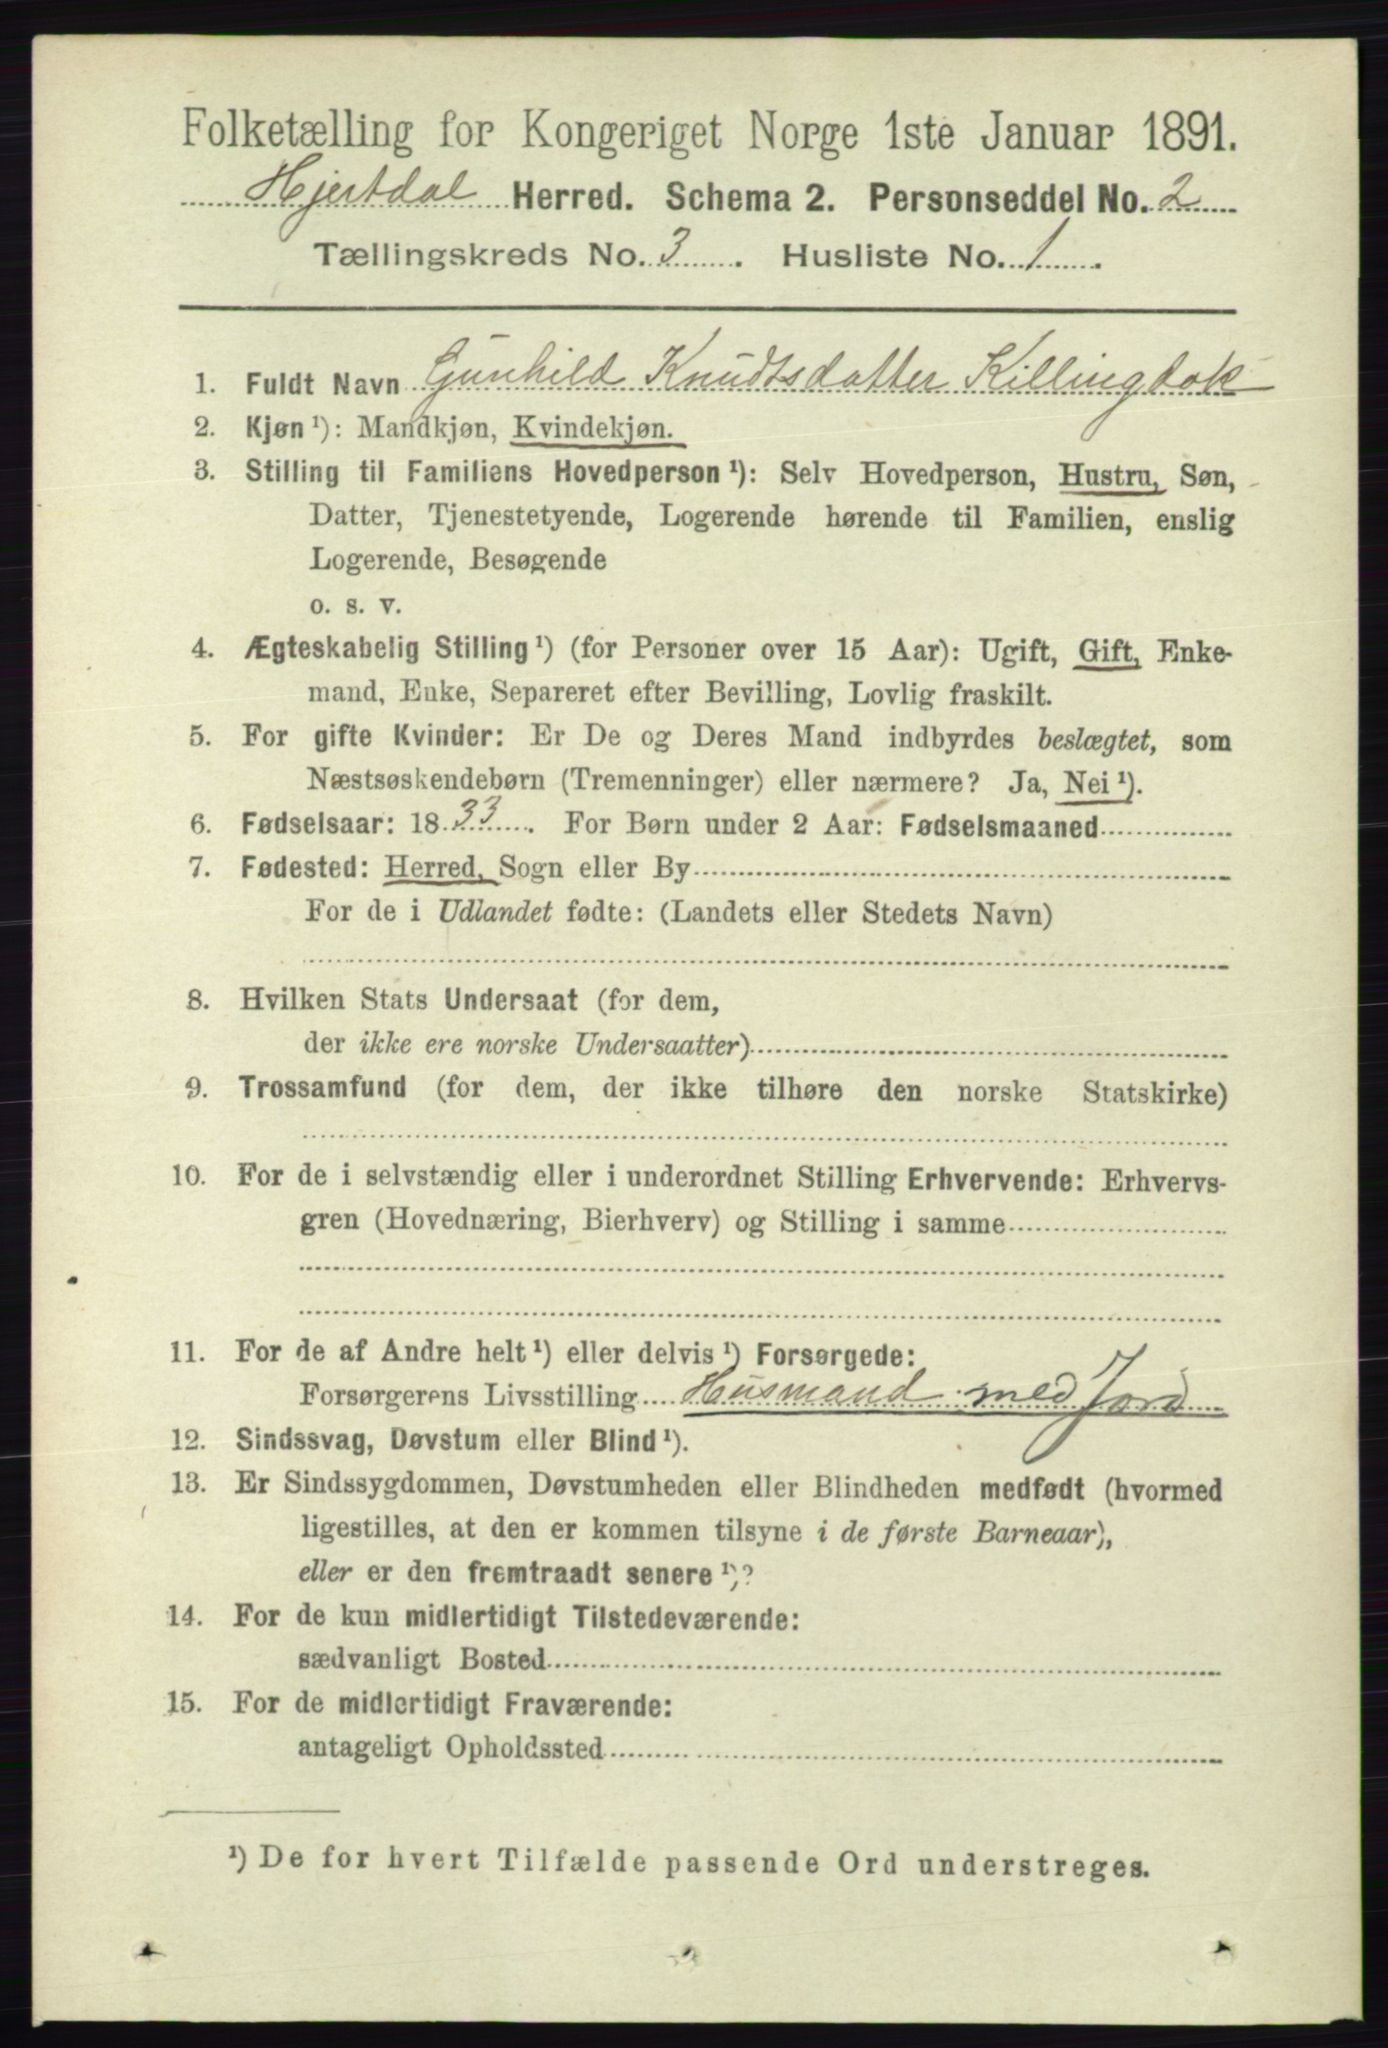 Folketælling for Kongeriget Norge 1ste Januar 1891.
Hjertdal Herred. Schema 2. Personseddel No. 2
Tællingskreds No. 3. Husliste No. 1.
1. Fuldt Navn Gunhild Knudtsdatter Killingdok
2. Kjøn ¹): Mandkjøn, Kvindekjøn.
3. Stilling til Familiens Hovedperson ¹): Selv Hovedperson, Hustru, Søn,
Datter, Tjenestetyende, Logerende hørende til Familien, enslig
Logerende, Besøgende
o. s. v.
4. Ægteskabelig Stilling ¹) (for Personer over 15 Aar): Ugift, Gift, Enke-
mand, Enke, Separeret efter Bevilling, Lovlig fraskilt.
5. For gifte Kvinder: Er De og Deres Mand indbyrdes beslægtet, som
Næstsøskendebørn (Tremenninger) eller nærmere? Ja, Nei ¹).
6. Fødselsaar: 1833. For Børn under 2 Aar: Fødselsmaaned
7. Fødested: Herred, Sogn eller By
For de i Udlandet fødte: (Landets eller Stedets Navn)
8. Hvilken Stats Undersaat (for dem,
der ikke ere norske Undersaatter)
9. Trossamfund (for dem, der ikke tilhøre den norske Statskirke)
10. For de i selvstændig eller i underordnet Stilling Erhvervende: Erhvervs-
gren (Hovednæring, Bierhverv) og Stilling i samme
11. For de af Andre helt ¹) eller delvis ¹) Forsørgede:
Forsørgerens Livsstilling Husmand med Jord
12. Sindssvag, Døvstum eller Blind ¹).
13. Er Sindssygdommen, Døvstumheden eller Blindheden medfødt (hvormed
ligestilles, at den er kommen tilsyne i de første Barneaar),
eller er den fremtraadt senere ¹)?
14. For de kun midlertidigt Tilstedeværende:
sædvanligt Bosted
15. For de midlertidigt Fraværende:
antageligt Opholdssted
¹) De for hvert Tilfælde passende Ord understreges.